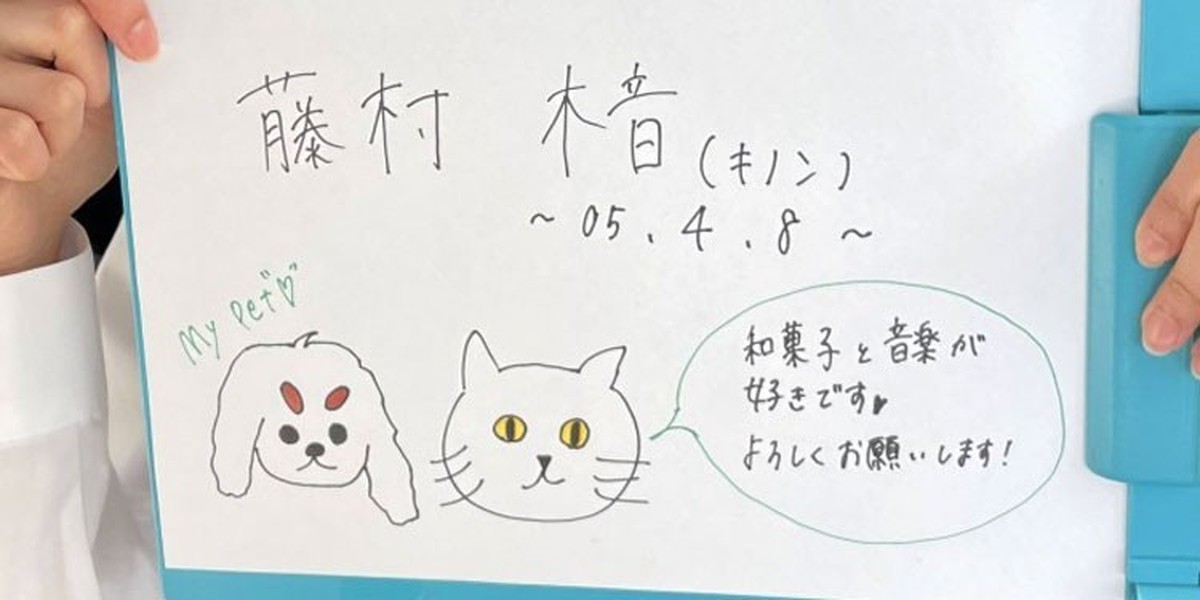 藤村 木音(キノン)
~05.4.8~
My pet♡
和菓子と音楽が
好きです♥
よろしくお願いします!